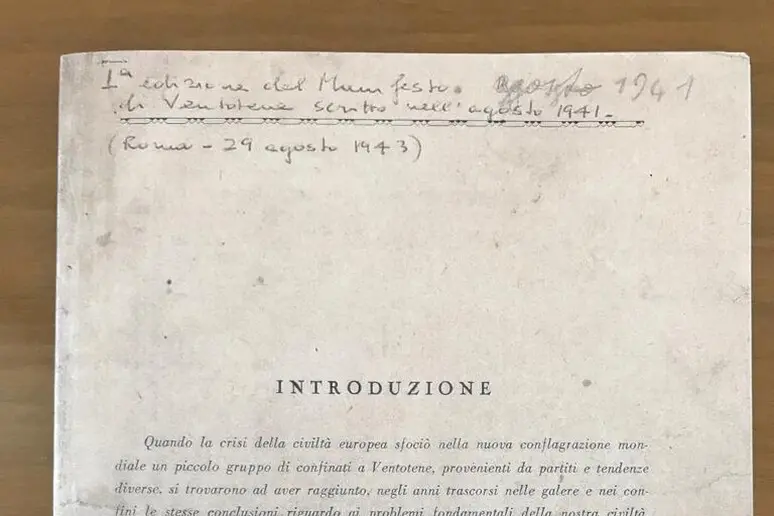 Iª edizione del Manifesto. agosto 1941
di Ventotene scritto nell'agosto 1941.
(Roma - 29 agosto 1943)
INTRODUZIONE
Quando la crisi della civiltà europea sfociò nella nuova conflagrazione mon-
diale un piccolo gruppo di confinati a Ventotene, provenienti da partiti e tendenze
diverse, si trovarono ad aver raggiunto, negli anni trascorsi nelle galere e nei con-
fini le stesse conclusioni riguardo ai problemi fondamentali della nostra civiltà